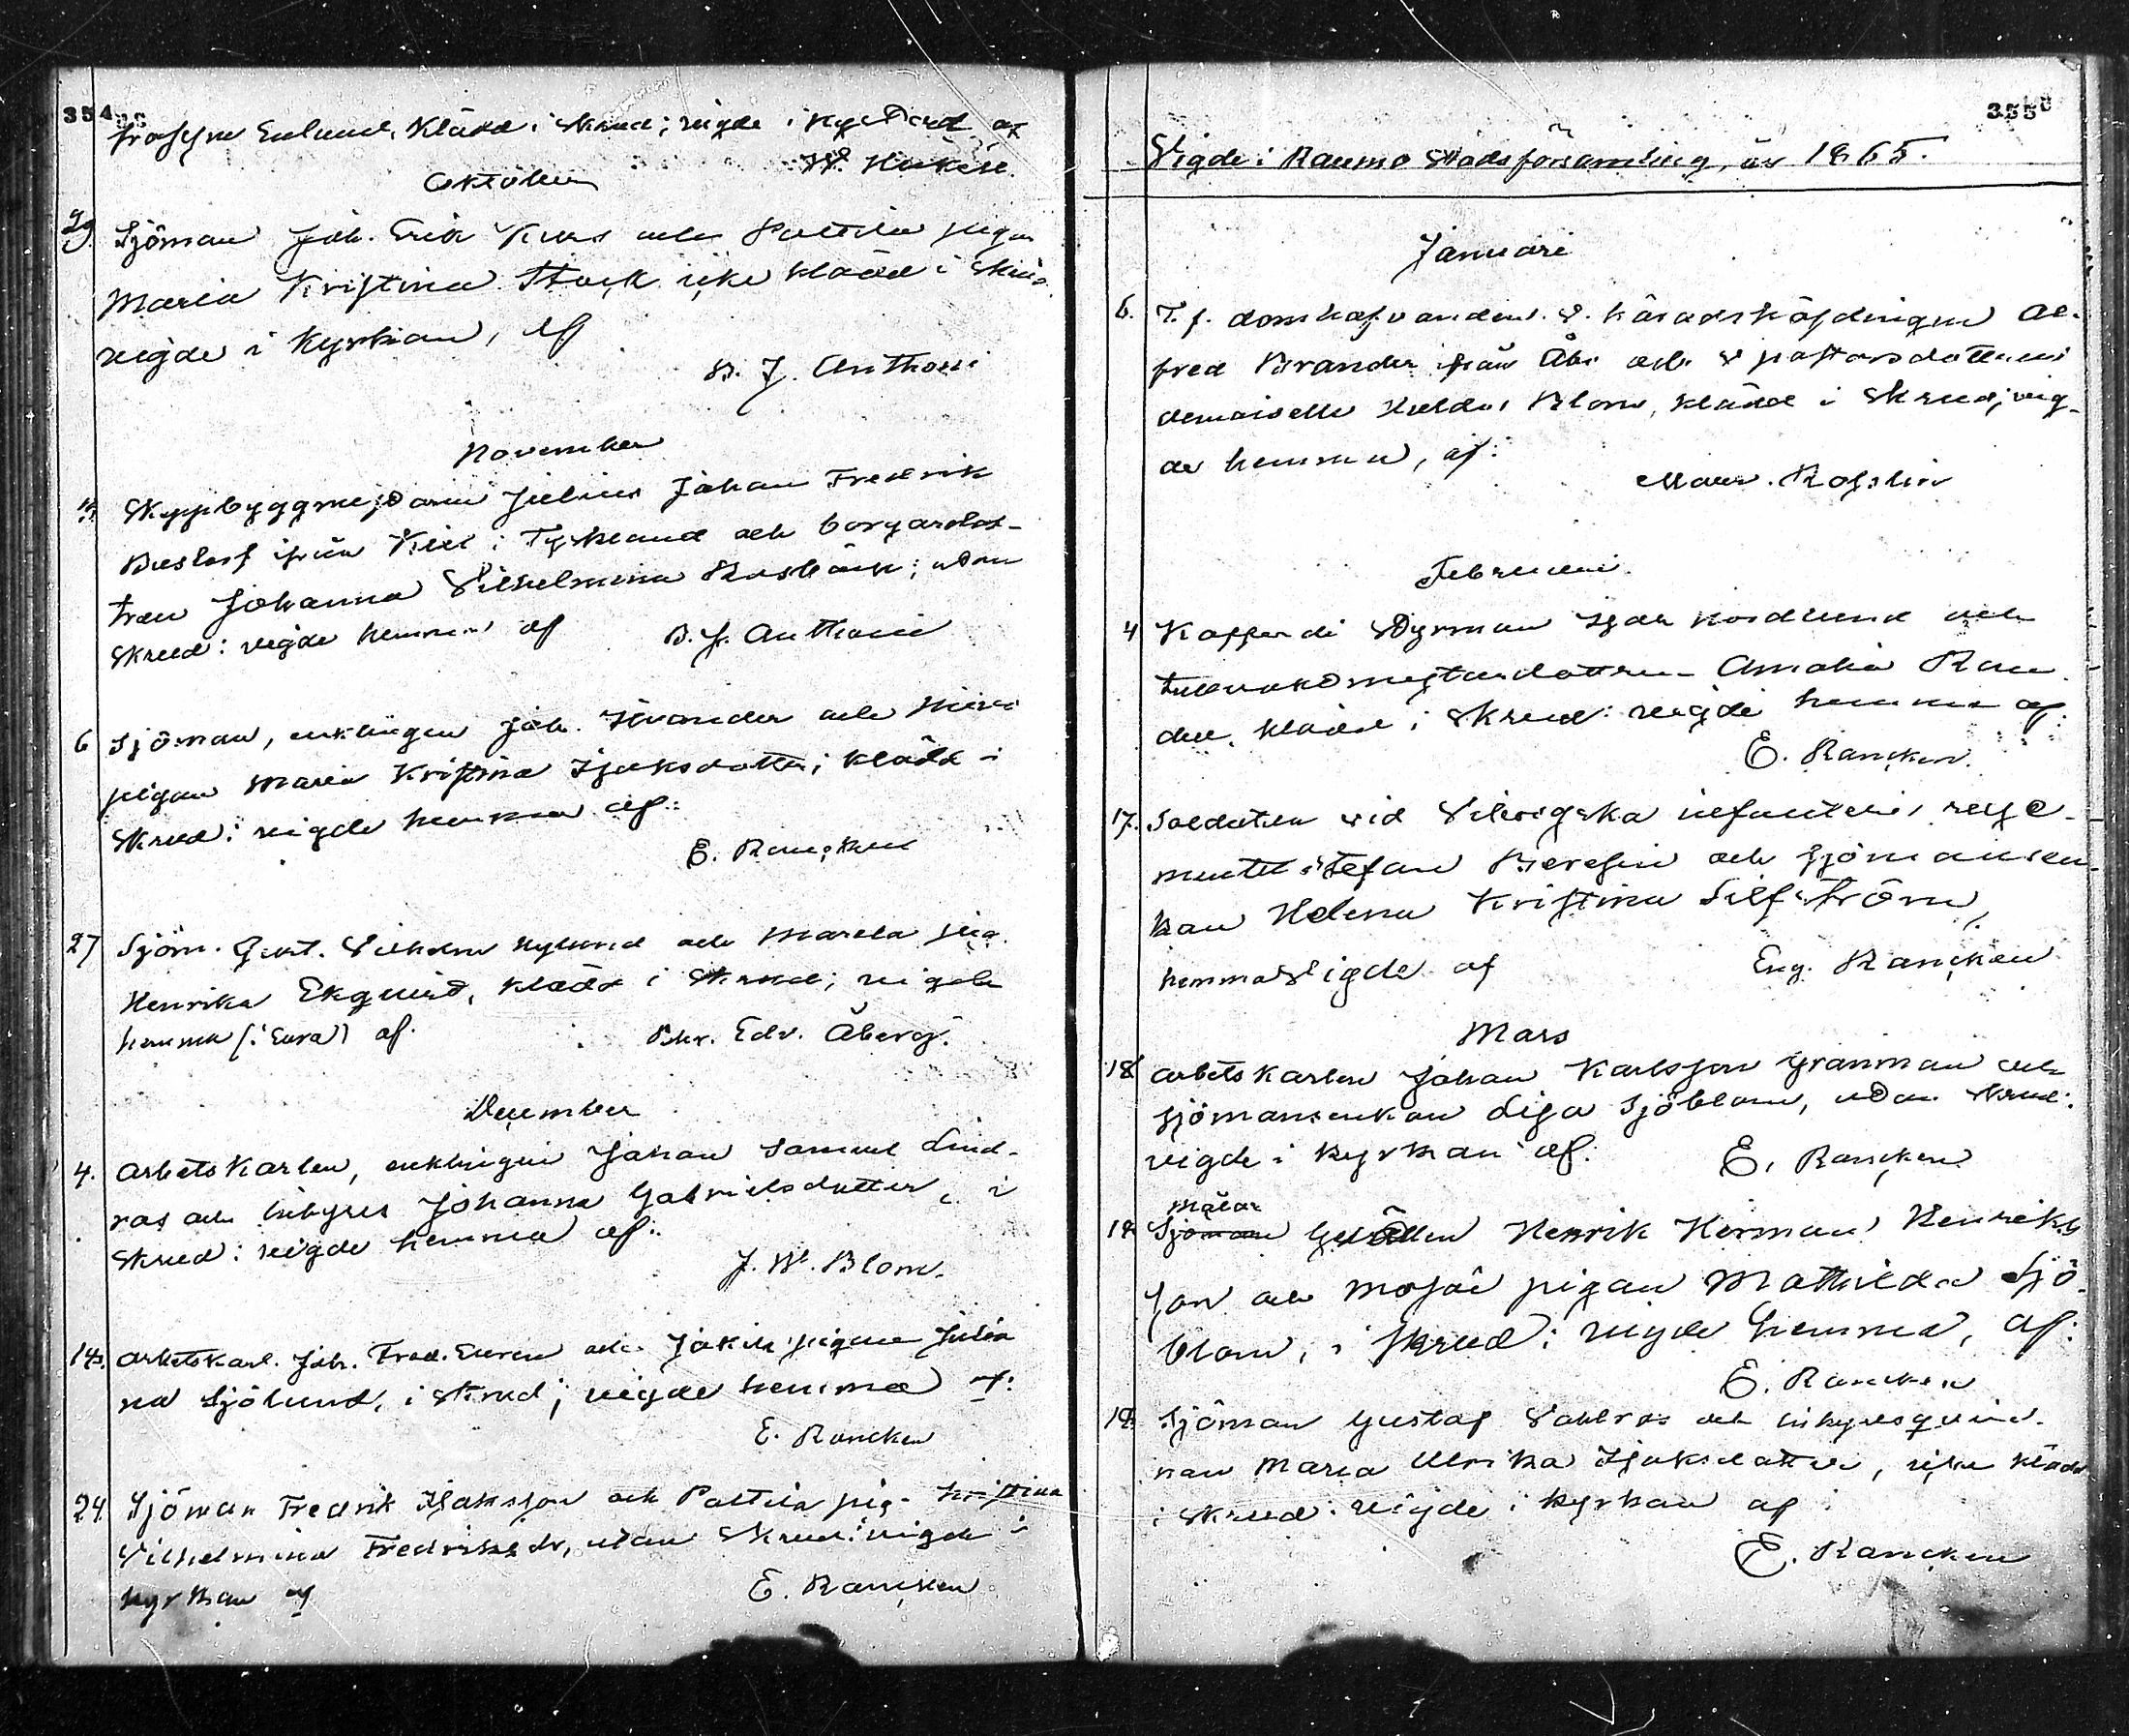 354
Enlund, klädd i skrud; vigde i af
W. Hökén.
Oktober
29 Sjöman Joh. Erik och Pattila pigan
Maria Kristina Stock icke klädd i skrud.
vigde i kyrkan, af
B. J. Anthoni
November
4. Skeppbyggmästaren Julius Johan Fredrik
från Kiel i Tyskland och borgaredot-
tren Johanna Vilhelmina utan
skrud: vigde hemma af B. J. Anthoni
6 Sjöman, enklingen Joh. och
pigan Maria Kristina Isaksdotter; klädd i
skrud: vigde hemma af:
E. Rancken
27 Sjöm. Gust. Vilhelm Nylund och Marela pig.
Henrika Ekquist, klädd i skrud; vigde
hemma (i Eura) af. Kr. Edv. Åberg.
December
4. Arbetskarlen, enklingen Johan Samuel Lind-
ros och inhyses Johanna Gabrielsdotter, i
skrud: vigde hemma af:
J. W. Blom.
14. Arbetskarl. Joh. Fred. Euren och Jakila pigan Julia
na Sjölund, i skrud; vigde hemma af:
E. Rancken
24. Sjöman Fredrik Isaksson och Pattila pig. Kristina
Vilhelmina Fredriksdr, utan skrud: vigde i
kyrkan af E. Rancken
355
Vigde i Raumo Stadsförsamling, år 1865.
Januari
6. T. f. domhafvanden v. häradshöfdingen Al-
fred Brander från Åbo och v pastorsdottern
demoiselle Hulda Blom, klädd i skrud; vig-
de hemma, af:
Maur. Rosslin
Februari.
4 Kofferdi Styrman Isak Nordlund och
tullvaktmästaredottren Amalia Ran
del. klädd i skrud: vigde hemma af:
E. Rancken.
17. Soldaten vid infanteri rege-
mentet Stefan Beresin och sjömansen-
kan Helena Kristina Silfström,
hemma vigde af Eug. Rancken
Mars
18 Arbetskarlen Johan Karlsson Granman och
sjömansenkan Lisa Sjöblom, utan skrud:
vigde i kyrkan af: E. Rancken
Målar
19. Sjöman Gesällen Henrik Herman Henriks
son och pigan Mathilda Sjö-
blom, i skrud: vigde hemma, af:
E. Rancken
19. Sjöman Gustaf Vahlros och inhysesqvin-
nan Maria Ulrika Isaksdotter, icke klädd
i skrud: vigde i kyrkan af
E. Rancken